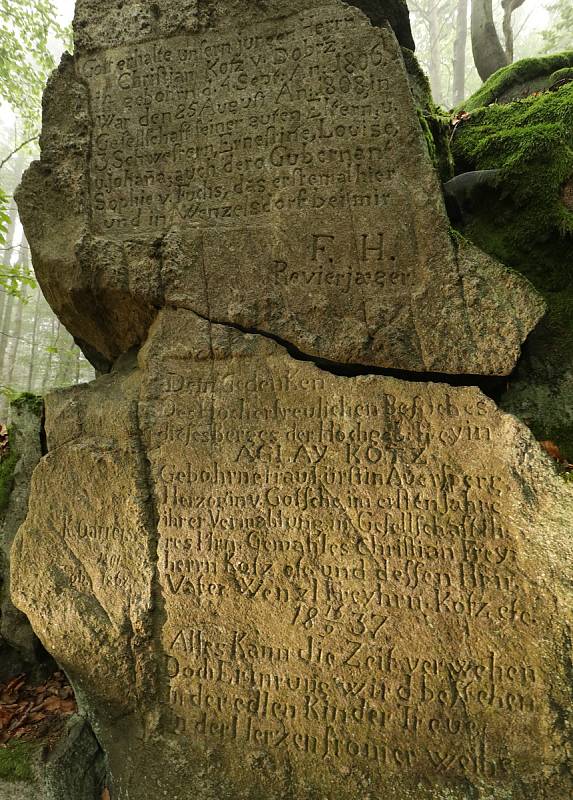 Gott erhalte unsern jungen Herrn
Christian Kotz v. Dobrž.
er gebohrn d. 4 Sept. An. 1806.
War den 8 August An. 1808, in
Gesellschaft seiner guten Eltern, u.
3 Schwestern, Ernestine, Louise,
u. Johaña, auch dero Gubernant
Sophie v. Fuchs, das erstemal hier
und in Wenzelsdorf bei mir
F. H.
Revierjaeger
Dem Gedenken
Des Höcherfreulichen Besuches
dieses berges der Hochgeb. Freyin
AGLAY KOTZ
Gebohrne Frau Fürstin Auersperg,
Herzogin v. Gotsche im ersten Jahre
ihrer Vermählung in Gesellschaft Ih
res Hrn. Gemahles Christian Frey
herrn Kotz etc und dessen Hrn.
Vater Wenzl Freyhrn. Kotz etc.
18 37.
Alles Kann die Zeit verwehen
Doch Erinrung wird bestehen
In der edlen Kinder Treue
In der Herzen fromer weihe